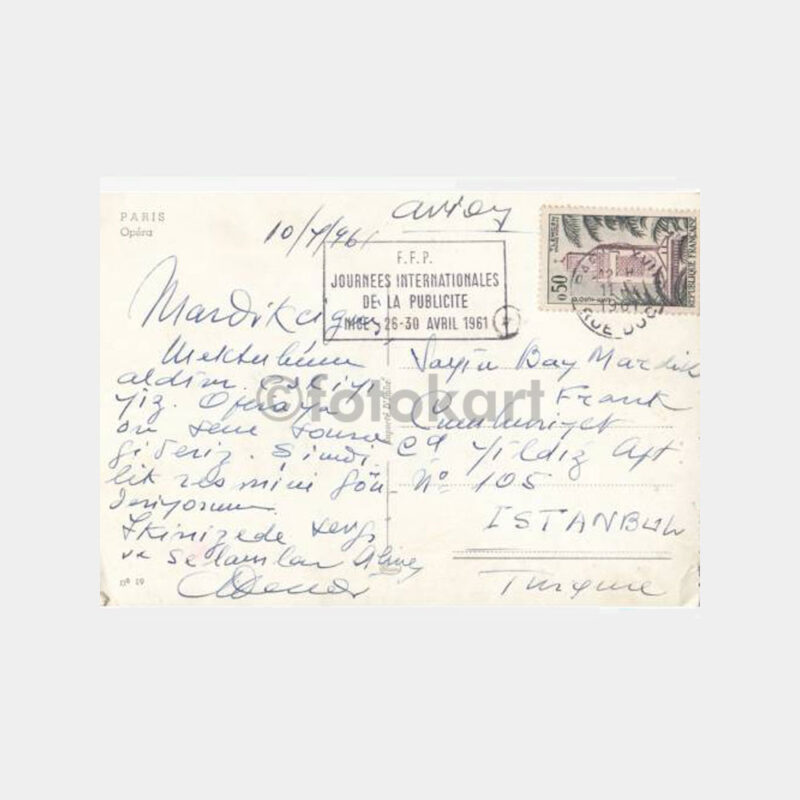 PARIS
Opéra
avion
10/4/961
F.F.P.
JOURNEES INTERNATIONALES
DE LA PUBLICITE
NICE 26-30 AVRIL 1961
0,50
REPUBLIQUE FRANÇAISE
1961
Mektubunu
aldım. iyi
yiz. Operaya
on sene sonra
gideriz. Şimdi
lik resmini gön
deriyorum
İkinizede sevgi
ve selamlar
Sayın Bay Mardik
Frank
Cumhuriyet
Cd Yıldız Apt.
No 105
ISTANBUL
Turquie
nº 19
©fotokart